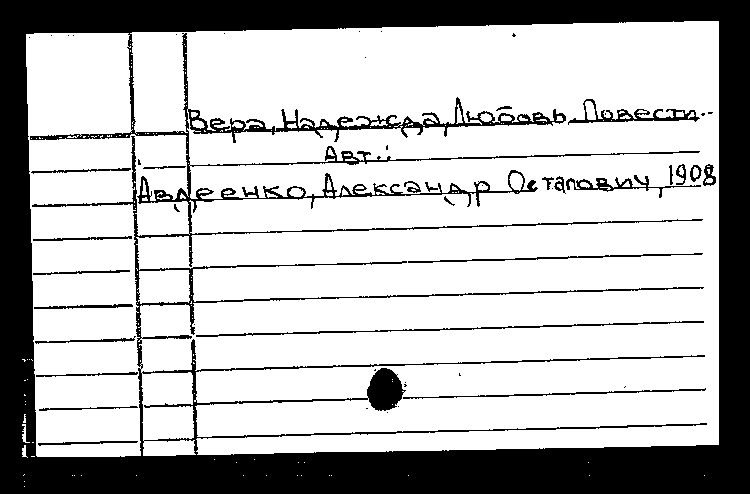 Вера, Надежда, Любовь. Повести..
Авт.:
Авдеенко, Александр Остапович, 1908